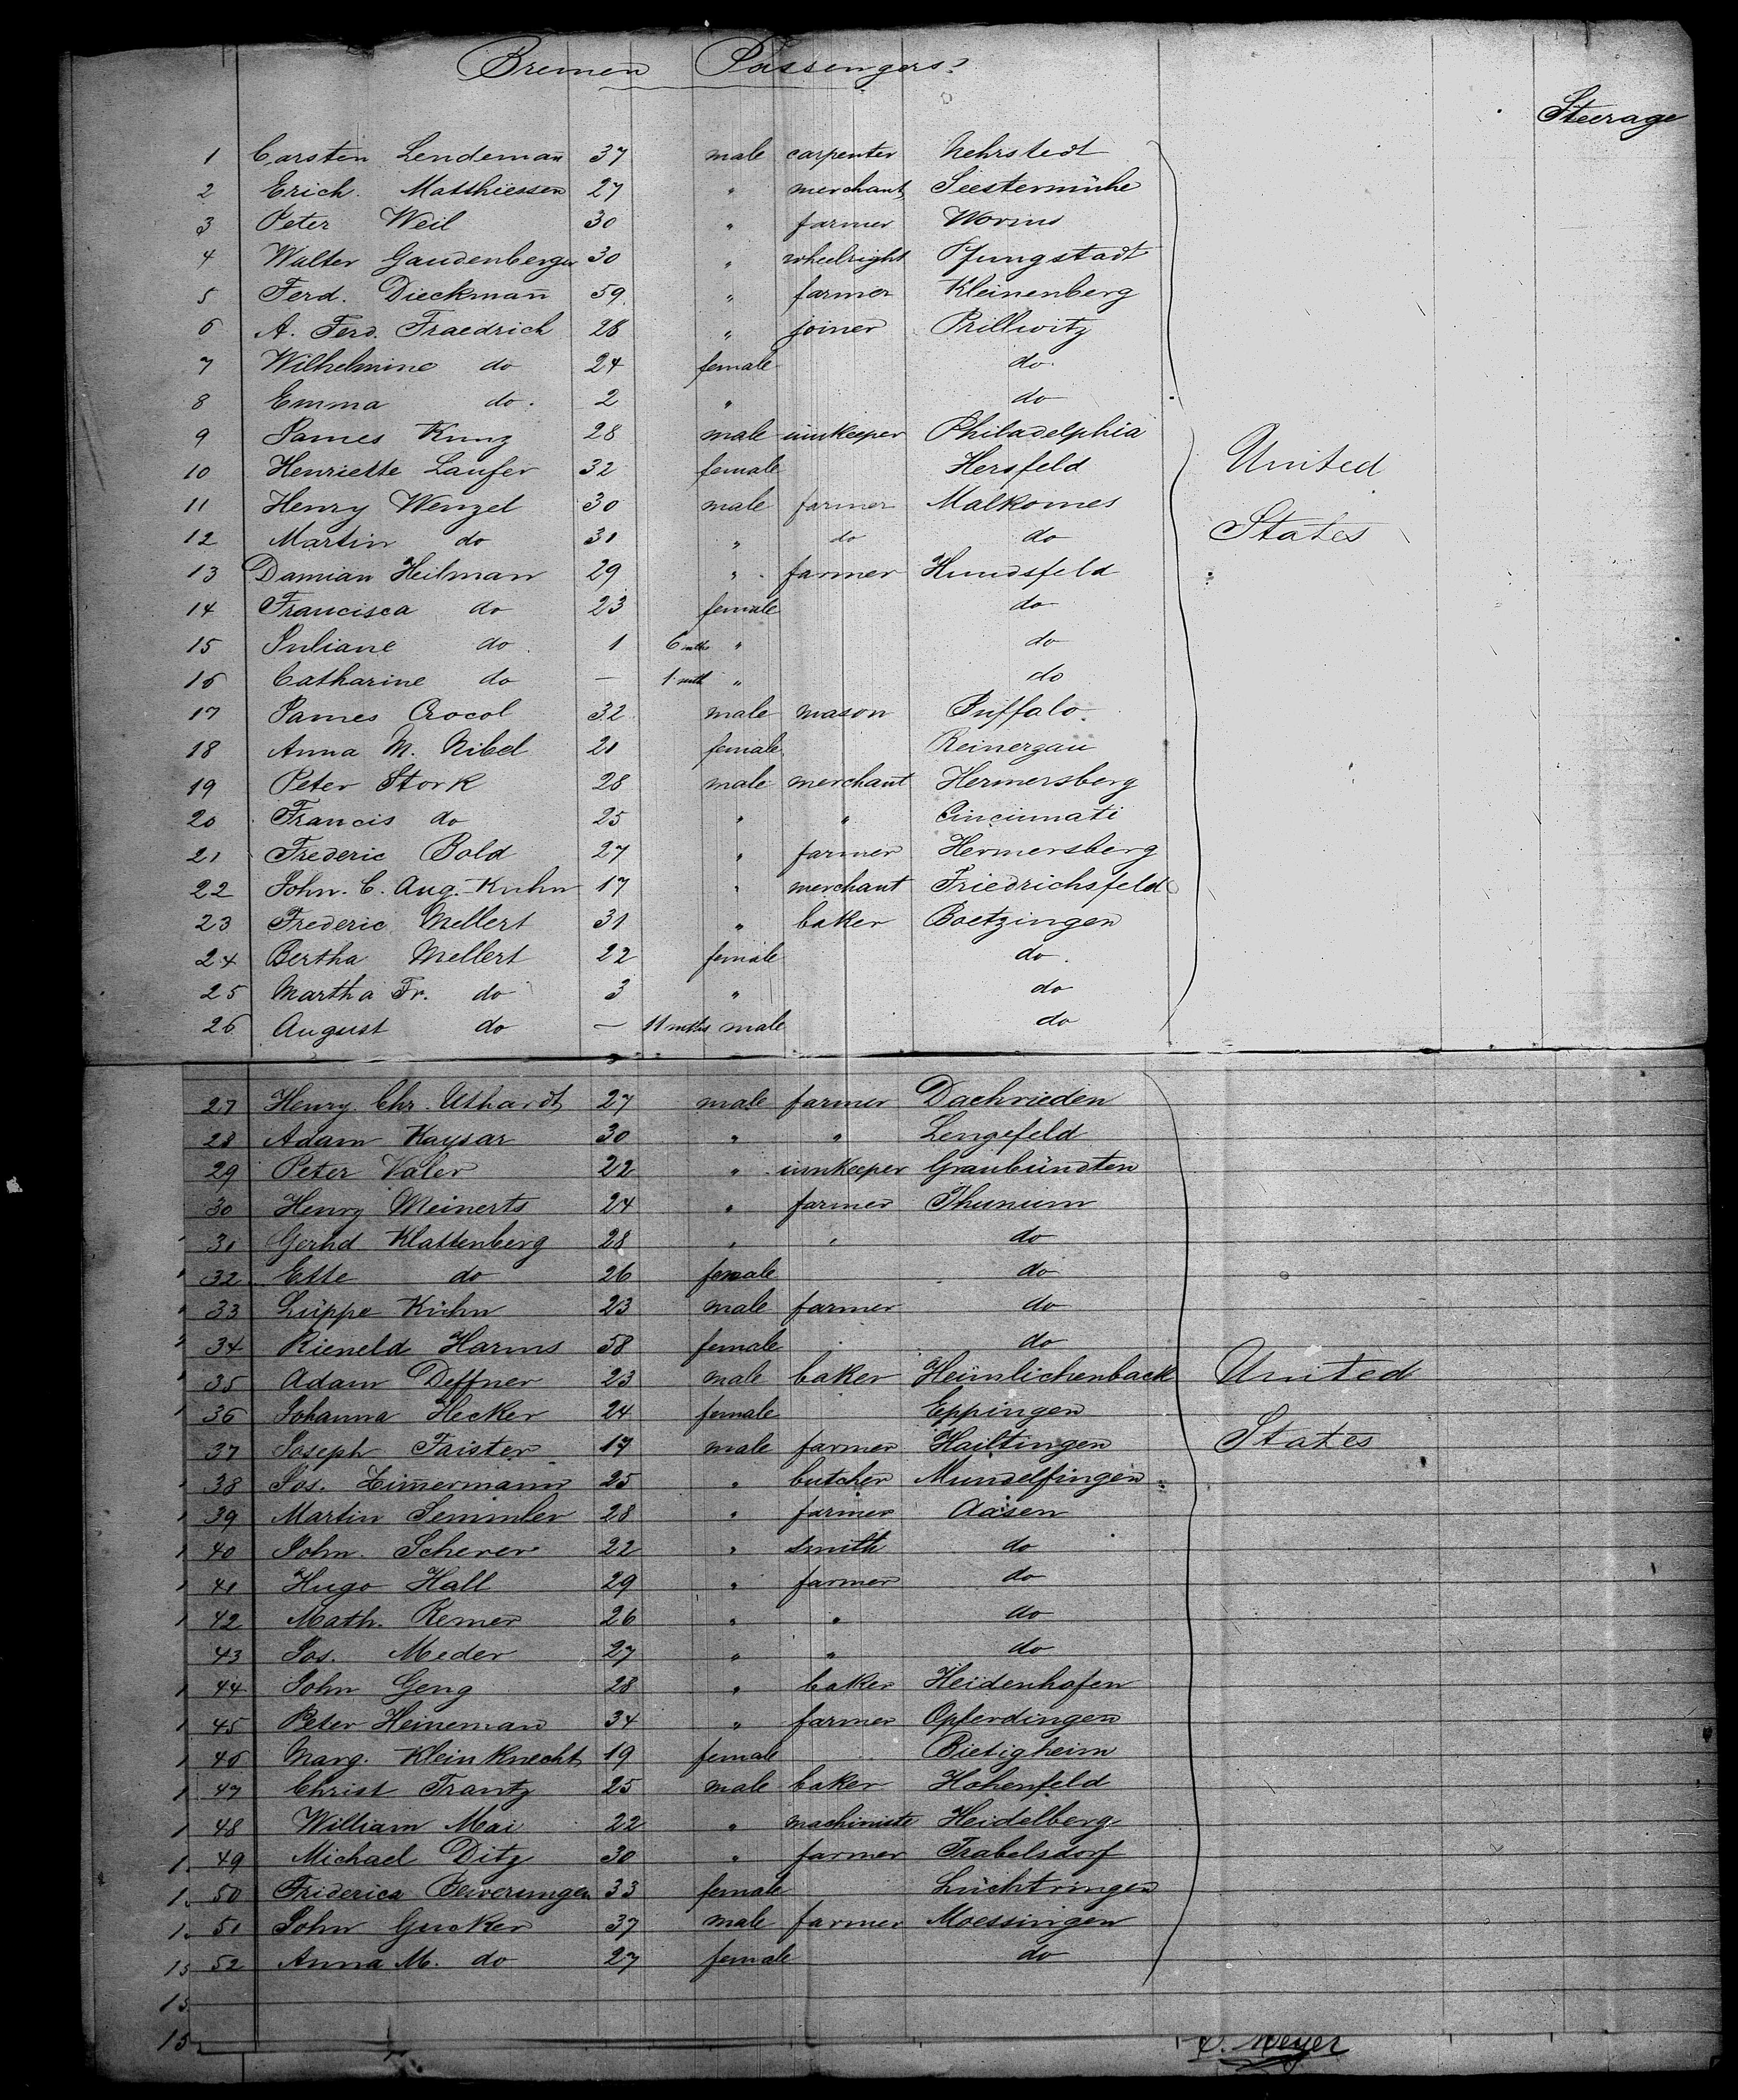 Bremen Passengers.
Steerage
1 Carsten Lendemañ 37 male carpenter Nehrstedt
2 Erich. Matthiessen 27 " merchant Seestermühe
3 Peter Weil 30 " farmer Worms
4 Walter Gaudenberger 30 " wheelright Pfungstadt
5 Ferd. Dieckmañ 59 " farmer Kleinenberg
6 A. Ferd. Fraedrich 28 " joiner Prillwitz
7 Wilhelmine do 24 female do.
8 Emma do. 2 " do
9 James Kunz 28 male innkeeper Philadelphia
10 Henriette Laufer 32 female Hersfeld
United
11 Henry Wenzel 30 male farmer Malkomes
12 Martin do 31 " do do
States
13 Damian Heilman 29 " farmer Hundsfeld
14 Francisca do 23 female do
15 Juliane do 1 6 mths " do
16 Catharine do — 1 mth " do
17 James Crocol 32 male mason Buffalo
18 Anna M. Nibel 21 female Reinergau
19 Peter Stork 28 male merchant Hermersberg
20 Francis do 25 " " Cincinnati
21 Frederic Bold 27 " farmer Hermersberg
22 John. C. Aug. Kuhn 17 " merchant Friedrichsfeld
23 Frederic Mellert 31 " baker Boetzingen
24 Bertha Mellert 22 female do.
25 Martha Fr. do 3 " do
26 August do — 11 mths male do
27 Henry Chr. Uthardt 27 male farmer Dachrieden
28 Adam Kaysar 30 " " Lengefeld
29 Peter Valer 22 " innkeeper Graubündten
30 Henry Meinerts 24 " farmer Thunum
31 Gerhd Klattenberg 28 " " do
32 Ette do 26 female do
33 Lüppe Kuhn 23 male farmer do
34 Rieneld Harms 58 female do
35 Adam Deffner 23 male baker Heimlichenback United
36 Johanna Hecker 24 female Eppingen
37 Joseph Faister 17 male farmer Hailtingen States
38 Jos. Zim̄ermann 25 " butcher Mundelfingen
39 Martin Semmler 28 " farmer Aasen
40 John. Scherer 22 " smith do
41 Hugo Hall 29 " farmer do
42 Math. Remer 26 " " do
43 Jos. Meder 27 " " do
44 John Geng 28 " baker Heidenhofen
45 Peter Heineman 34 " farmer Opferdingen
46 Marg. Kleinknecht 19 female Bietigheim
47 Christ Trantz 25 male baker Hohenfeld
48 William Mai 22 " machiniste Heidelberg
49 Michael Ditz 30 " farmer Trabelsdorf
50 Friderica Beverungen 33 female Lüchtringen
51 John Gucker 37 male farmer Moessingen
52 Anna M. do 27 female do
Meyer